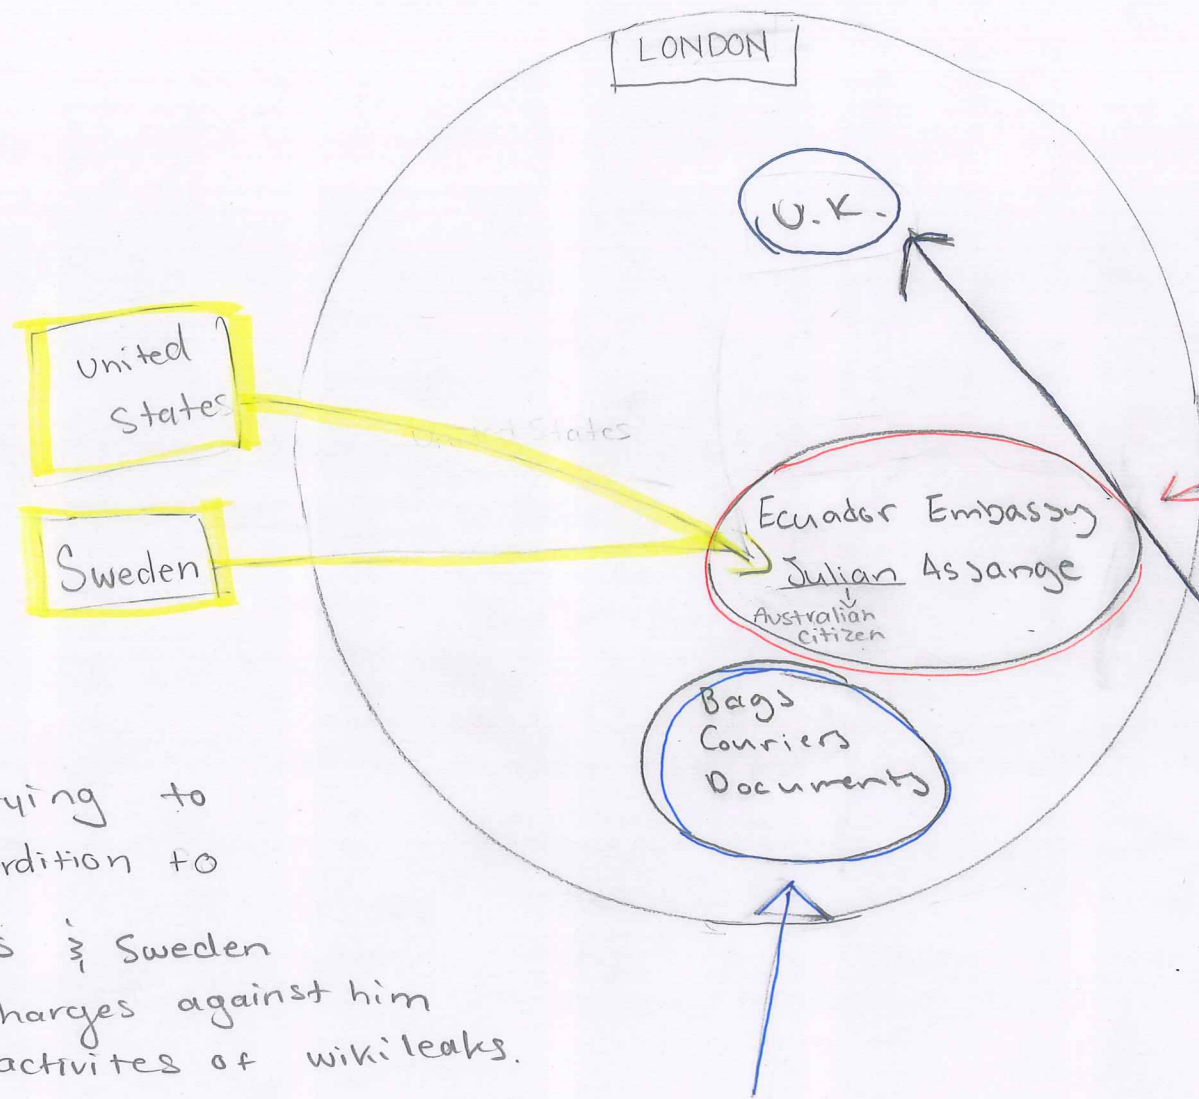 LONDON
U.K.
United
States
United States
Sweden
Ecuador Embassy
Julian Assange
Australian
citizen
Bags
Couriers
Documents
to
to
& Sweden
against him
activites of wikileaks.